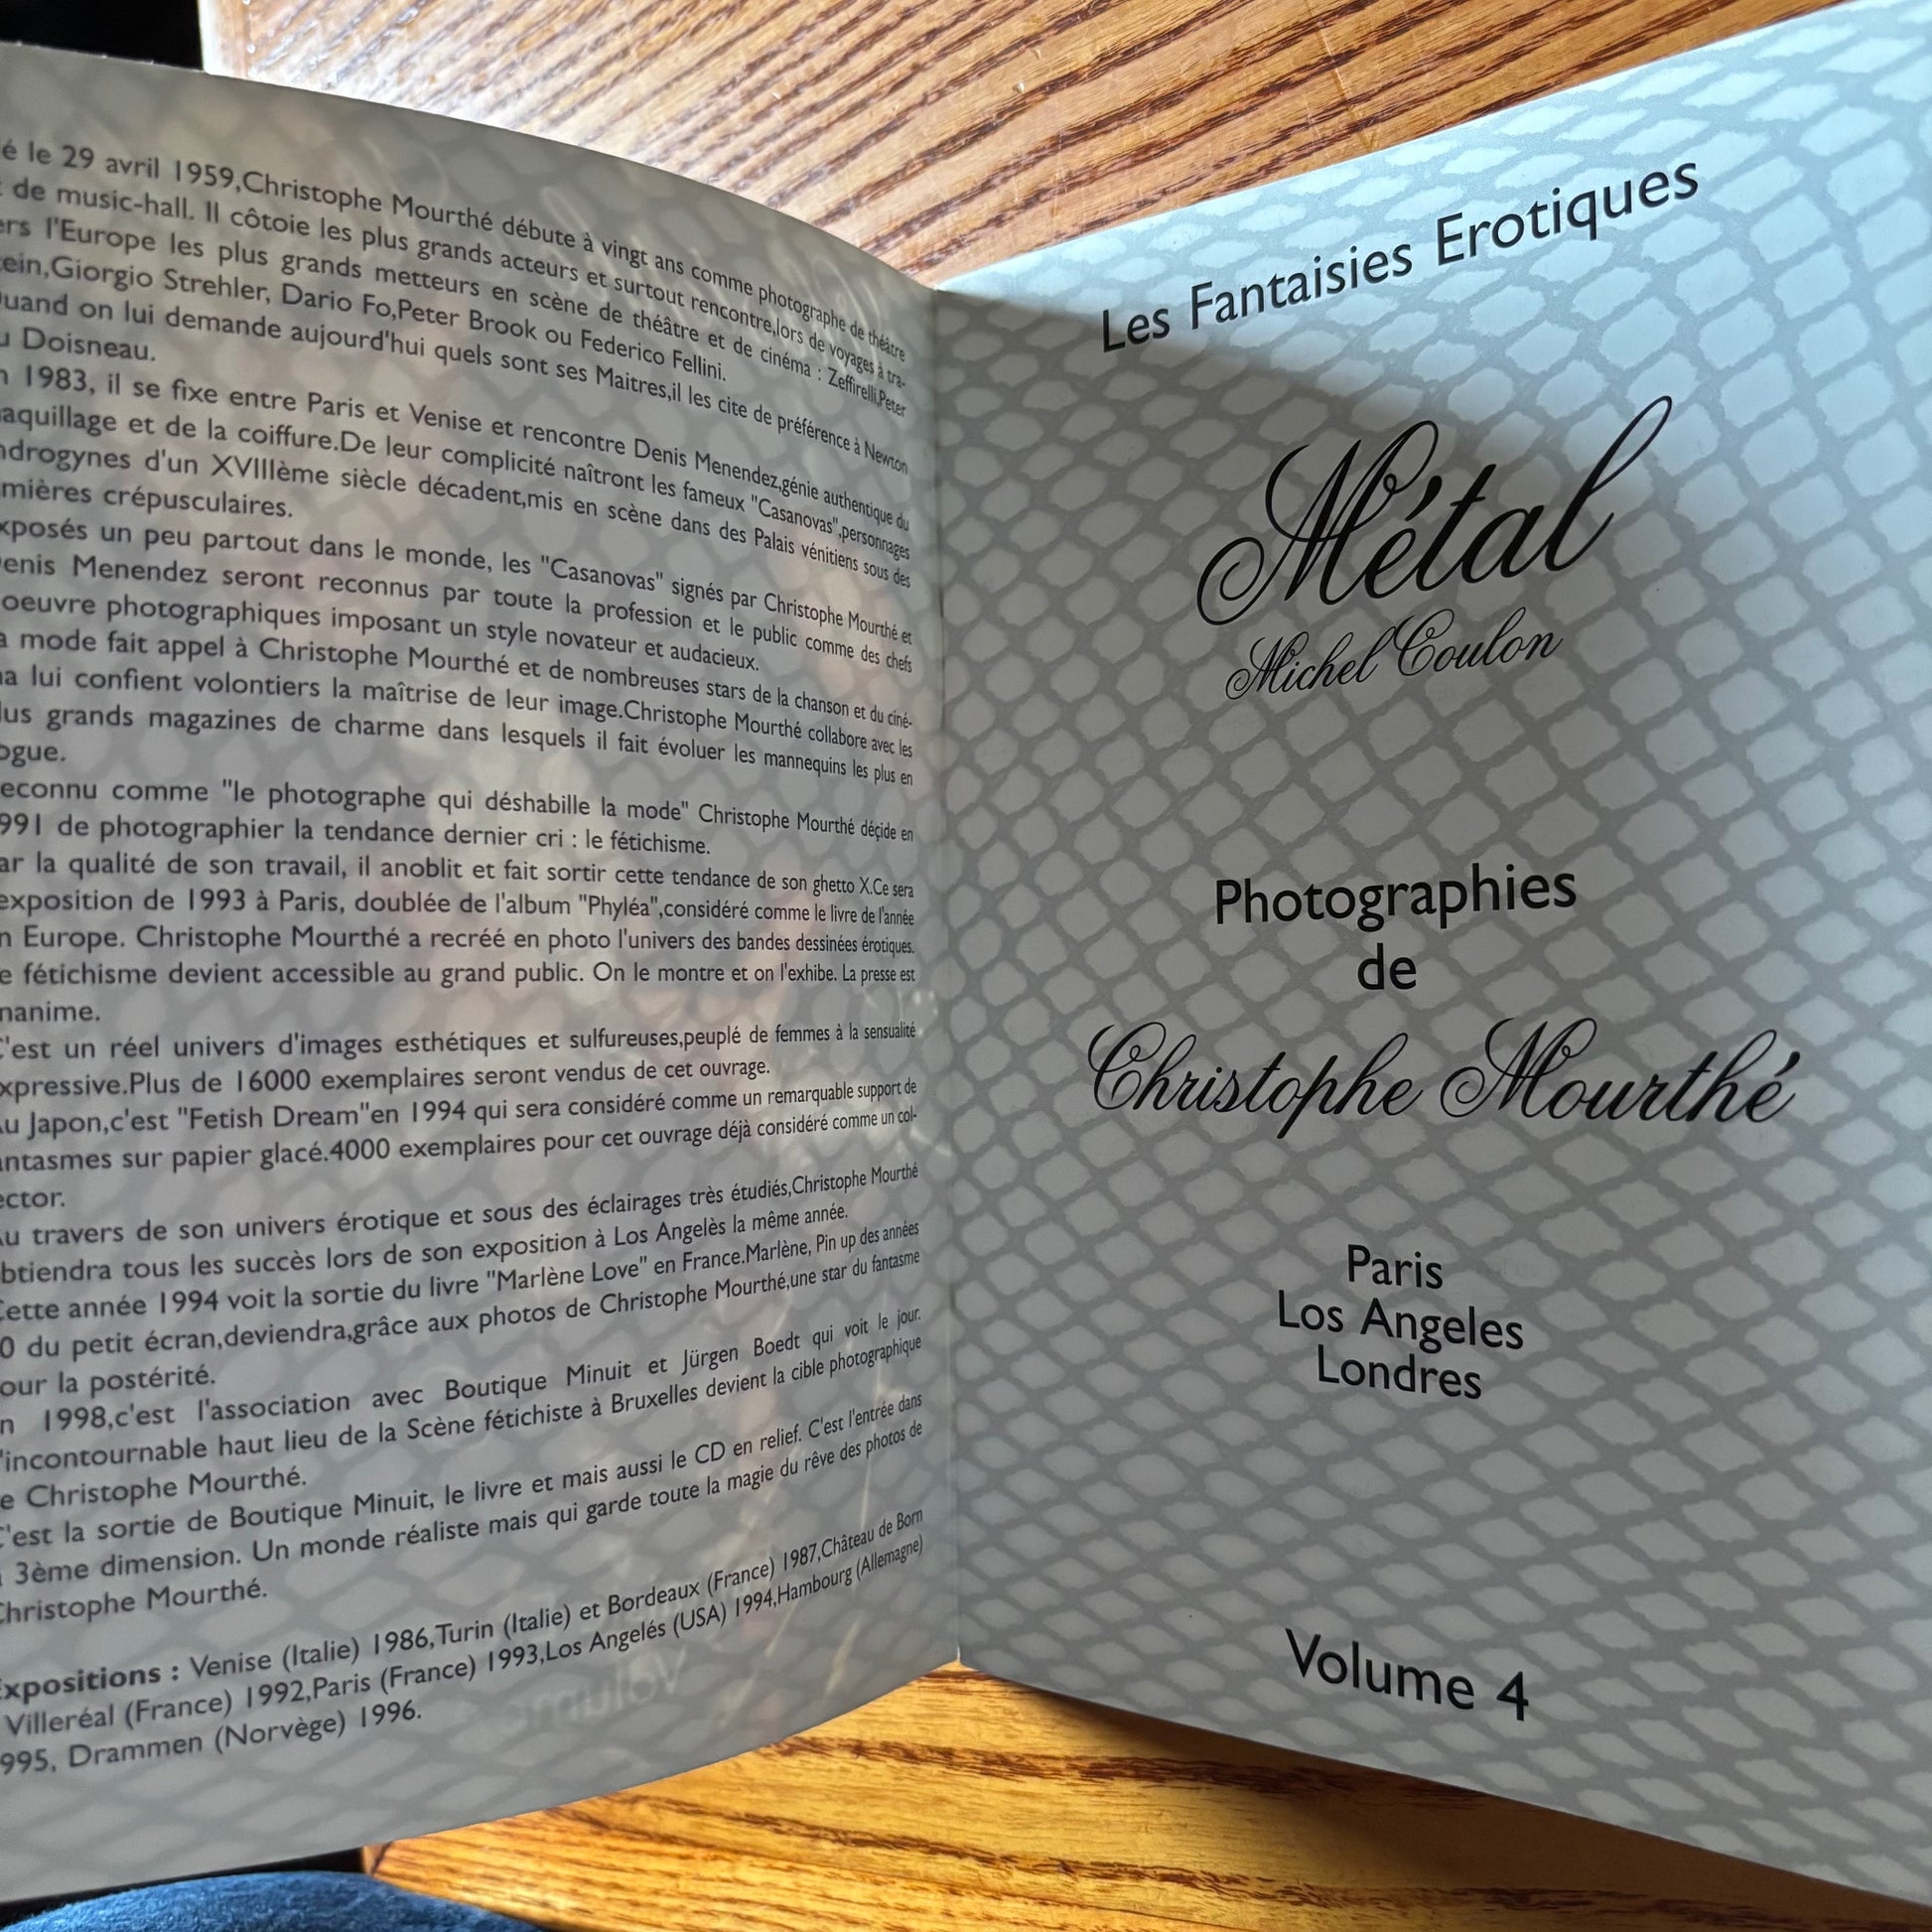 é le 29 avril 1959,Christophe Mourthé débute à vingt ans comme photographe de théâtre
de music-hall. Il côtoie les plus grands acteurs et surtout rencontre,lors de voyages à tra-
ers l'Europe les plus grands metteurs en scène de théâtre et de cinéma : Zeffirelli,Peter
ein,Giorgio Strehler, Dario Fo,Peter Brook ou Federico Fellini.
uand on lui demande aujourd'hui quels sont ses Maitres,il les cite de préférence à Newton
u Doisneau.
n 1983, il se fixe entre Paris et Venise et rencontre Denis Menendez,génie authentique du
aquillage et de la coiffure.De leur complicité naîtront les fameux "Casanovas",personnages
ndrogynes d'un XVIIIème siècle décadent,mis en scène dans des Palais vénitiens sous des
mières crépusculaires.
xposés un peu partout dans le monde, les "Casanovas" signés par Christophe Mourthé et
enis Menendez seront reconnus par toute la profession et le public comme des chefs
oeuvre photographiques imposant un style novateur et audacieux.
a mode fait appel à Christophe Mourthé et de nombreuses stars de la chanson et du ciné-
a lui confient volontiers la maîtrise de leur image.Christophe Mourthé collabore avec les
lus grands magazines de charme dans lesquels il fait évoluer les mannequins les plus en
ogue.
econnu comme "le photographe qui déshabille la mode" Christophe Mourthé déçide en
991 de photographier la tendance dernier cri : le fétichisme.
ar la qualité de son travail, il anoblit et fait sortir cette tendance de son ghetto X.Ce sera
exposition de 1993 à Paris, doublée de l'album "Phyléa",considéré comme le livre de l'année
n Europe. Christophe Mourthé a recréé en photo l'univers des bandes dessinées érotiques.
e fétichisme devient accessible au grand public. On le montre et on l'exhibe. La presse est
nanime.
C'est un réel univers d'images esthétiques et sulfureuses,peuplé de femmes à la sensualité
xpressive.Plus de 16000 exemplaires seront vendus de cet ouvrage.
Au Japon,c'est "Fetish Dream"en 1994 qui sera considéré comme un remarquable support de
antasmes sur papier glacé.4000 exemplaires pour cet ouvrage déjà considéré comme un col-
ector.
Au travers de son univers érotique et sous des éclairages très étudiés,Christophe Mourthé
btiendra tous les succès lors de son exposition à Los Angelès la même année.
Cette année 1994 voit la sortie du livre "Marlène Love" en France.Marlène, Pin up des années
0 du petit écran,deviendra,grâce aux photos de Christophe Mourthé,une star du fantasme
our la postérité.
n 1998,c'est l'association avec Boutique Minuit et Jürgen Boedt qui voit le jour.
'incontournable haut lieu de la Scène fétichiste à Bruxelles devient la cible photographique
e Christophe Mourthé.
C'est la sortie de Boutique Minuit, le livre et mais aussi le CD en relief. C'est l'entrée dans
a 3ème dimension. Un monde réaliste mais qui garde toute la magie du rêve des photos de
Christophe Mourthé.
Expositions : Venise (Italie) 1986,Turin (Italie) et Bordeaux (France) 1987,Château de Born
Villeréal (France) 1992,Paris (France) 1993,Los Angelés (USA) 1994,Hambourg (Allemagne)
995, Drammen (Norvège) 1996.
Les Fantaisies Erotiques
Métal
Michel Coulon
Photographies
de
Christophe Mourthé
Paris
Los Angeles
Londres
Volume 4